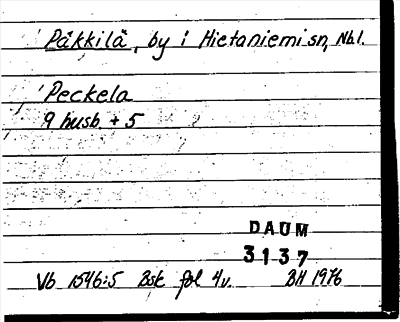 Päkkilä, by i Hietaniemi sn, Nbl.
Peckela
9 husb. + 5
DAUM
3137
Vb 1546:5 Bsk fol 4v. BH 1976